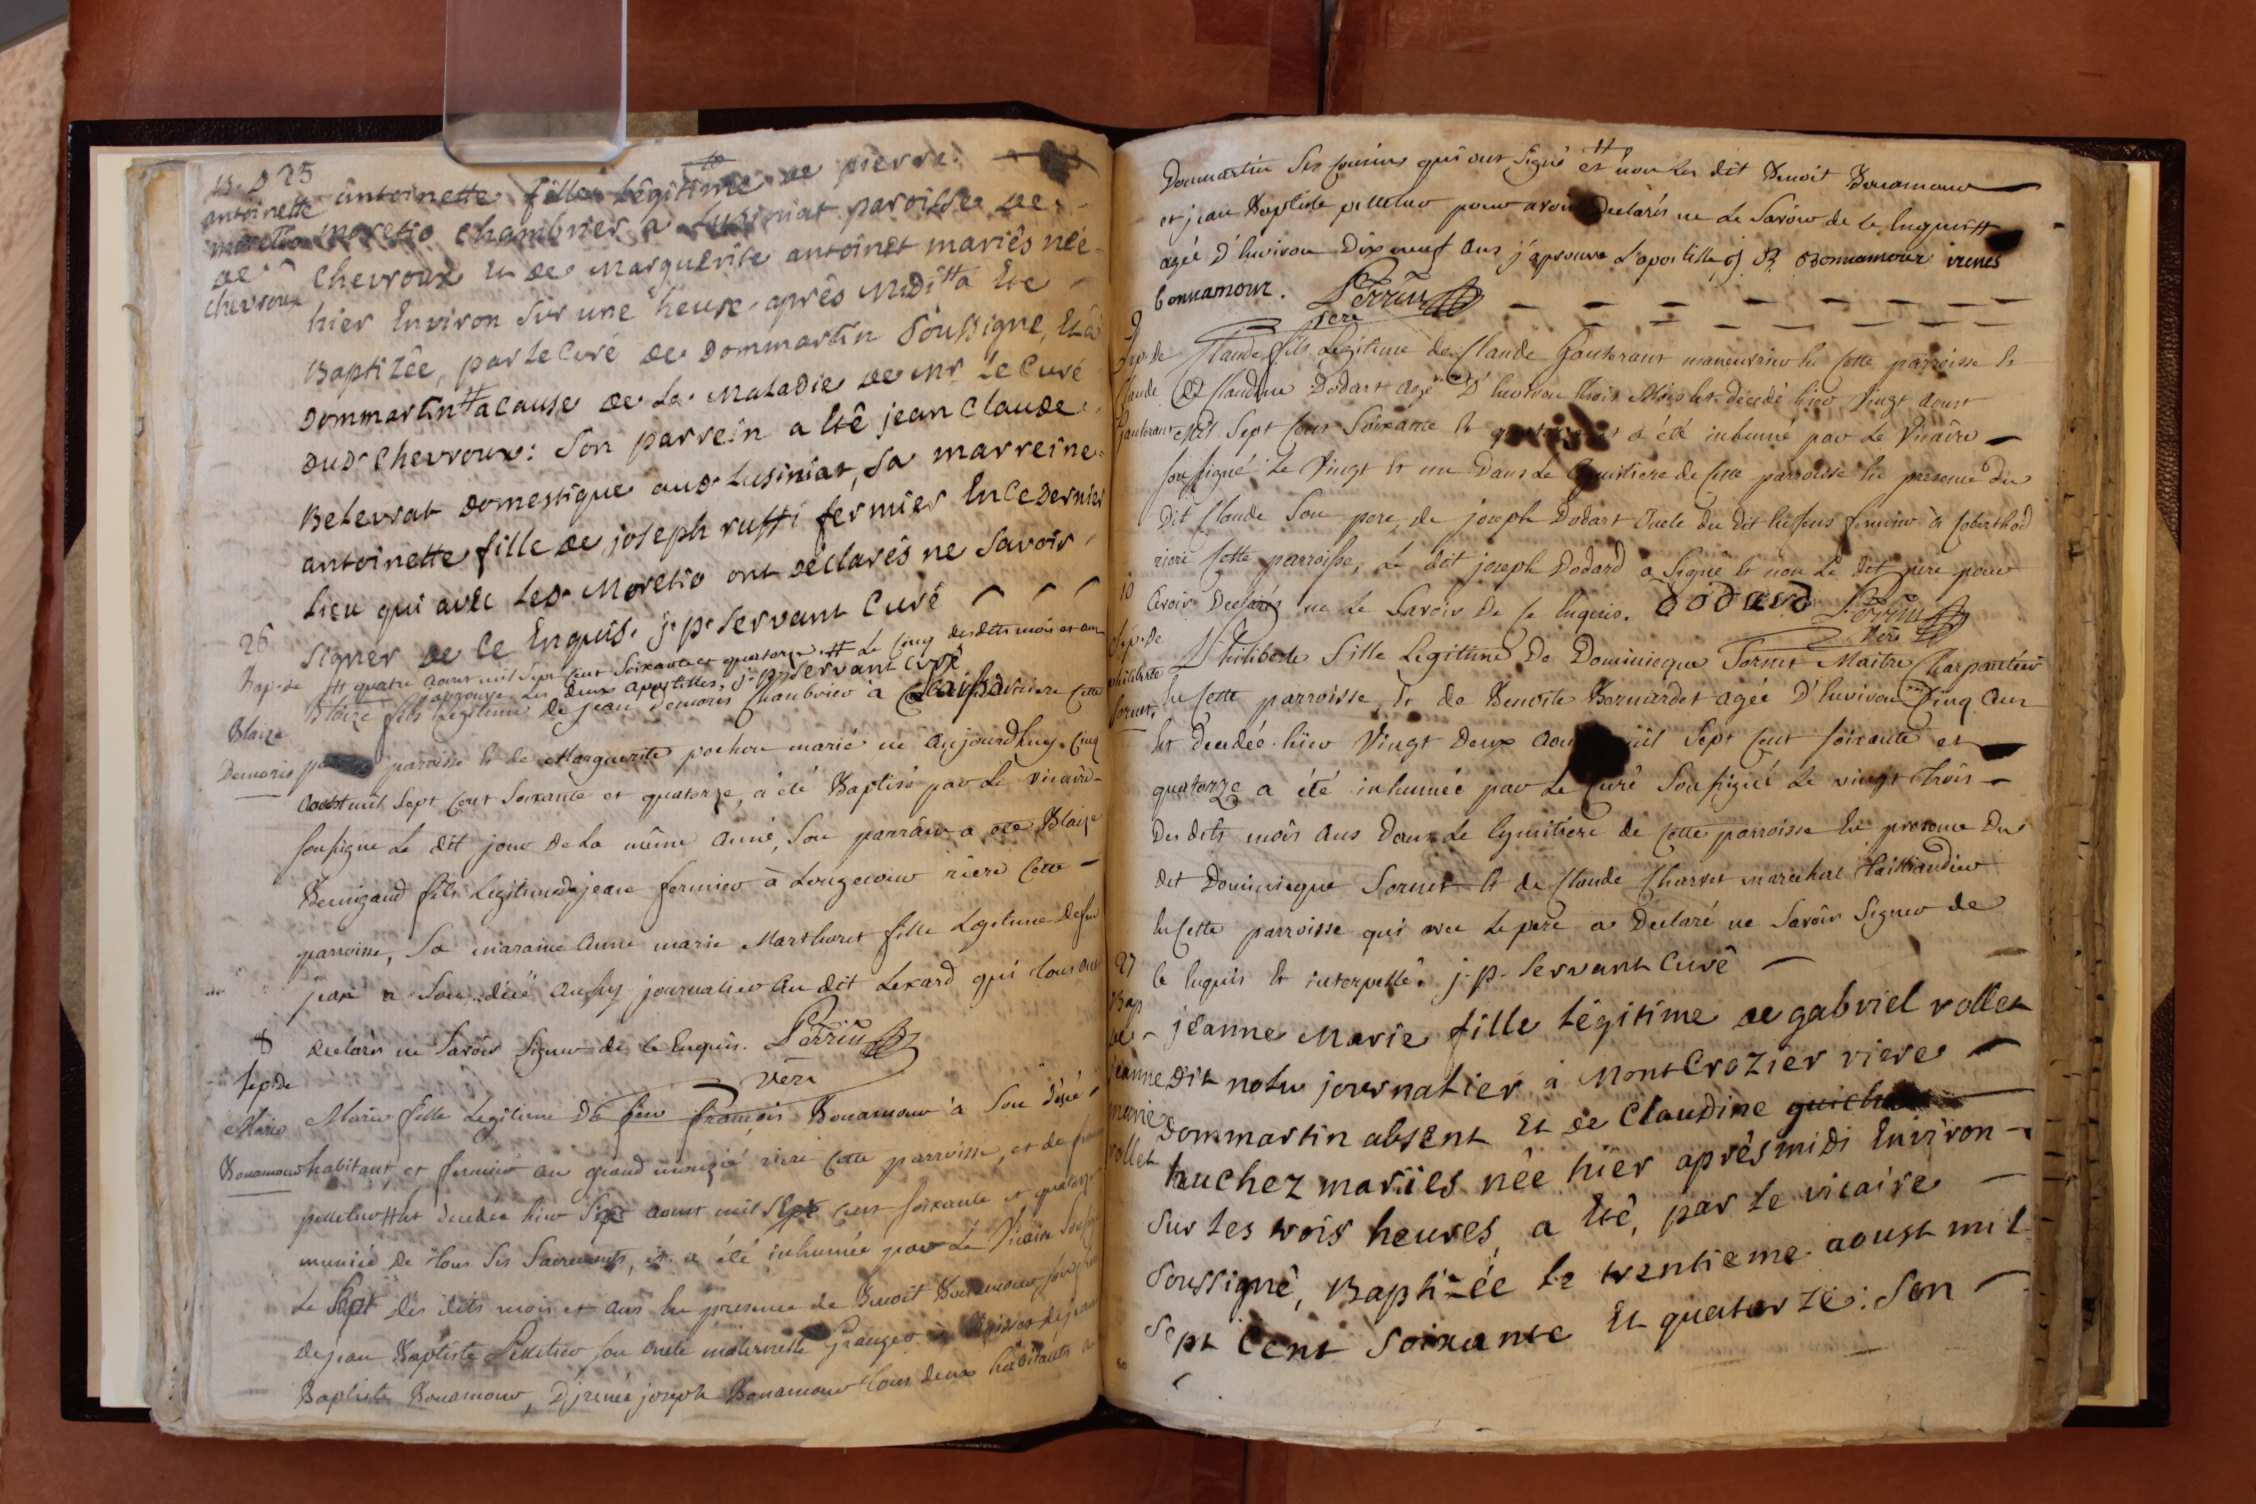 25
antoinette fille légitime de pierre
antoinette
moretio chambrier a Lusiniat paroisse de
moretio
de
chevroux
chevroux Et de Marguerite antoinet mariês née
hier Environ sur une heure après Midi # a Etê
Baptizêe, par le Curé de Dommartin soussigne, Et a
Dommartin # a cause de la Maladie de mr le Curé
dud chevroux: son parrein a Etê jean claude
Belevrat domestique aud Lusiniat, sa marreine
antoinette fille de joseph ruffi fermier En ce dernier
lieu qui avec led Moretio ont déclarés ne savoir
signer de ce Enquis. j. p. servant Curé
# quatre aoust mil sept cent soixante et quatorze # Le cinq desdits mois et an
26
Bap. de
Blaize
Demoris
j'approuve les deux apostilles, j. p. servant Curé
Blaize fils legitime de jean Demoris Chambrier à rière cette
paroisse et de Marguerite pochon marié né aujourdhuy cinq
aoust mil sept cent soixante et quatorze, a été Baptisé par le vicaire
soussigné le dit jour de la même année, son parrain a été Blaize
fils legitime de jean fermier à Longecour riere cette
parroisse, sa maraine anne marie Marthoret fille legitime de feu
jour a son décé journalier au dit Lexard qui tous ont
declarés ne savoir signer de ce Enquis. Perrin
Vere
8
Sep. de
Marie
Bonamour
Marie fille legitime De feu françois Bonamour à son décé
habitant et fermier au grand riere cette parroisse, et de
pelletier # est decedée hier sept aoust mil sept cent soixante et quatorze
munie de tous ses sacrements, et a été inhumée par le Vicaire
le sept des dits mois et ans En presence de Benoit Bonamour son
de jean Baptiste Pelletier son oncle maternelle
Baptiste Bonamour, D'jrenée joseph Bonamour tous deux habitants
Dommartin ses cousins qui ont signé et non les dit Benoit Bonamour
et jean Baptiste pelletier pour avoir Declarés ne le savoir de ce Enquis #
agée D'Environ Dix neuf ans j'aprouve l'apostille J. B. Bonnamour irenes
bonnamour. Perrin
Vere
9
Sep. de
Claude
Gauterant
Claude fils legitime de Claude Gauterant manouvrier En cette parroisse et
de Claudine Dodart agé D'Environ trois Mois est decedé hier vingt aoust
mil sept cens soixante et quatorze et a été inhumé par le Vicaire
soussigné le Vingt et un Dans le Cymitiere de cette parroisse En presence du
Dit Claude son pere, de joseph Dodart oncle du dit Enfans fermier à
riere cette parroisse, le dit joseph Dodard a signé et non le dit pere pour
avoir Declaré ne le savoir De ce Enquis. dodard Perrin
Vere
10
Sep. de
philiberte
Sornet
Philiberte fille Legitime De Dominicque Sornet Maitre Charpentier
En cette parroisse, et de Benoite Bernardet agée D'Environ Cinq ans
est decedée hier Vingt Deux aoust mil sept cent soixante et
quatorze a été inhumée par le Curé soussigné le vingt trois
des dits mois ans dans le Cymitiere de cette parroisse En presence du
dit Dominicque Sornet et de Claude Charvet marechal taillandier
En cette parroisse qui avec le pere a Declaré ne savoir signer de
ce Enquis et interpellé. j. p. servant Curé
27
Bap
de
jeanne
marie
rollet
jeanne Marie fille légitime de gabriel rollet
dit journalier à Mont Crozier riere
Dommartin absent Et de Claudine
huchez mariés née hier après midi Environ
sur les trois heures, a Eté, par le vicaire
soussigné, Baptizée le trentieme aoust mil
sept Cent soixante Et quatorze: son